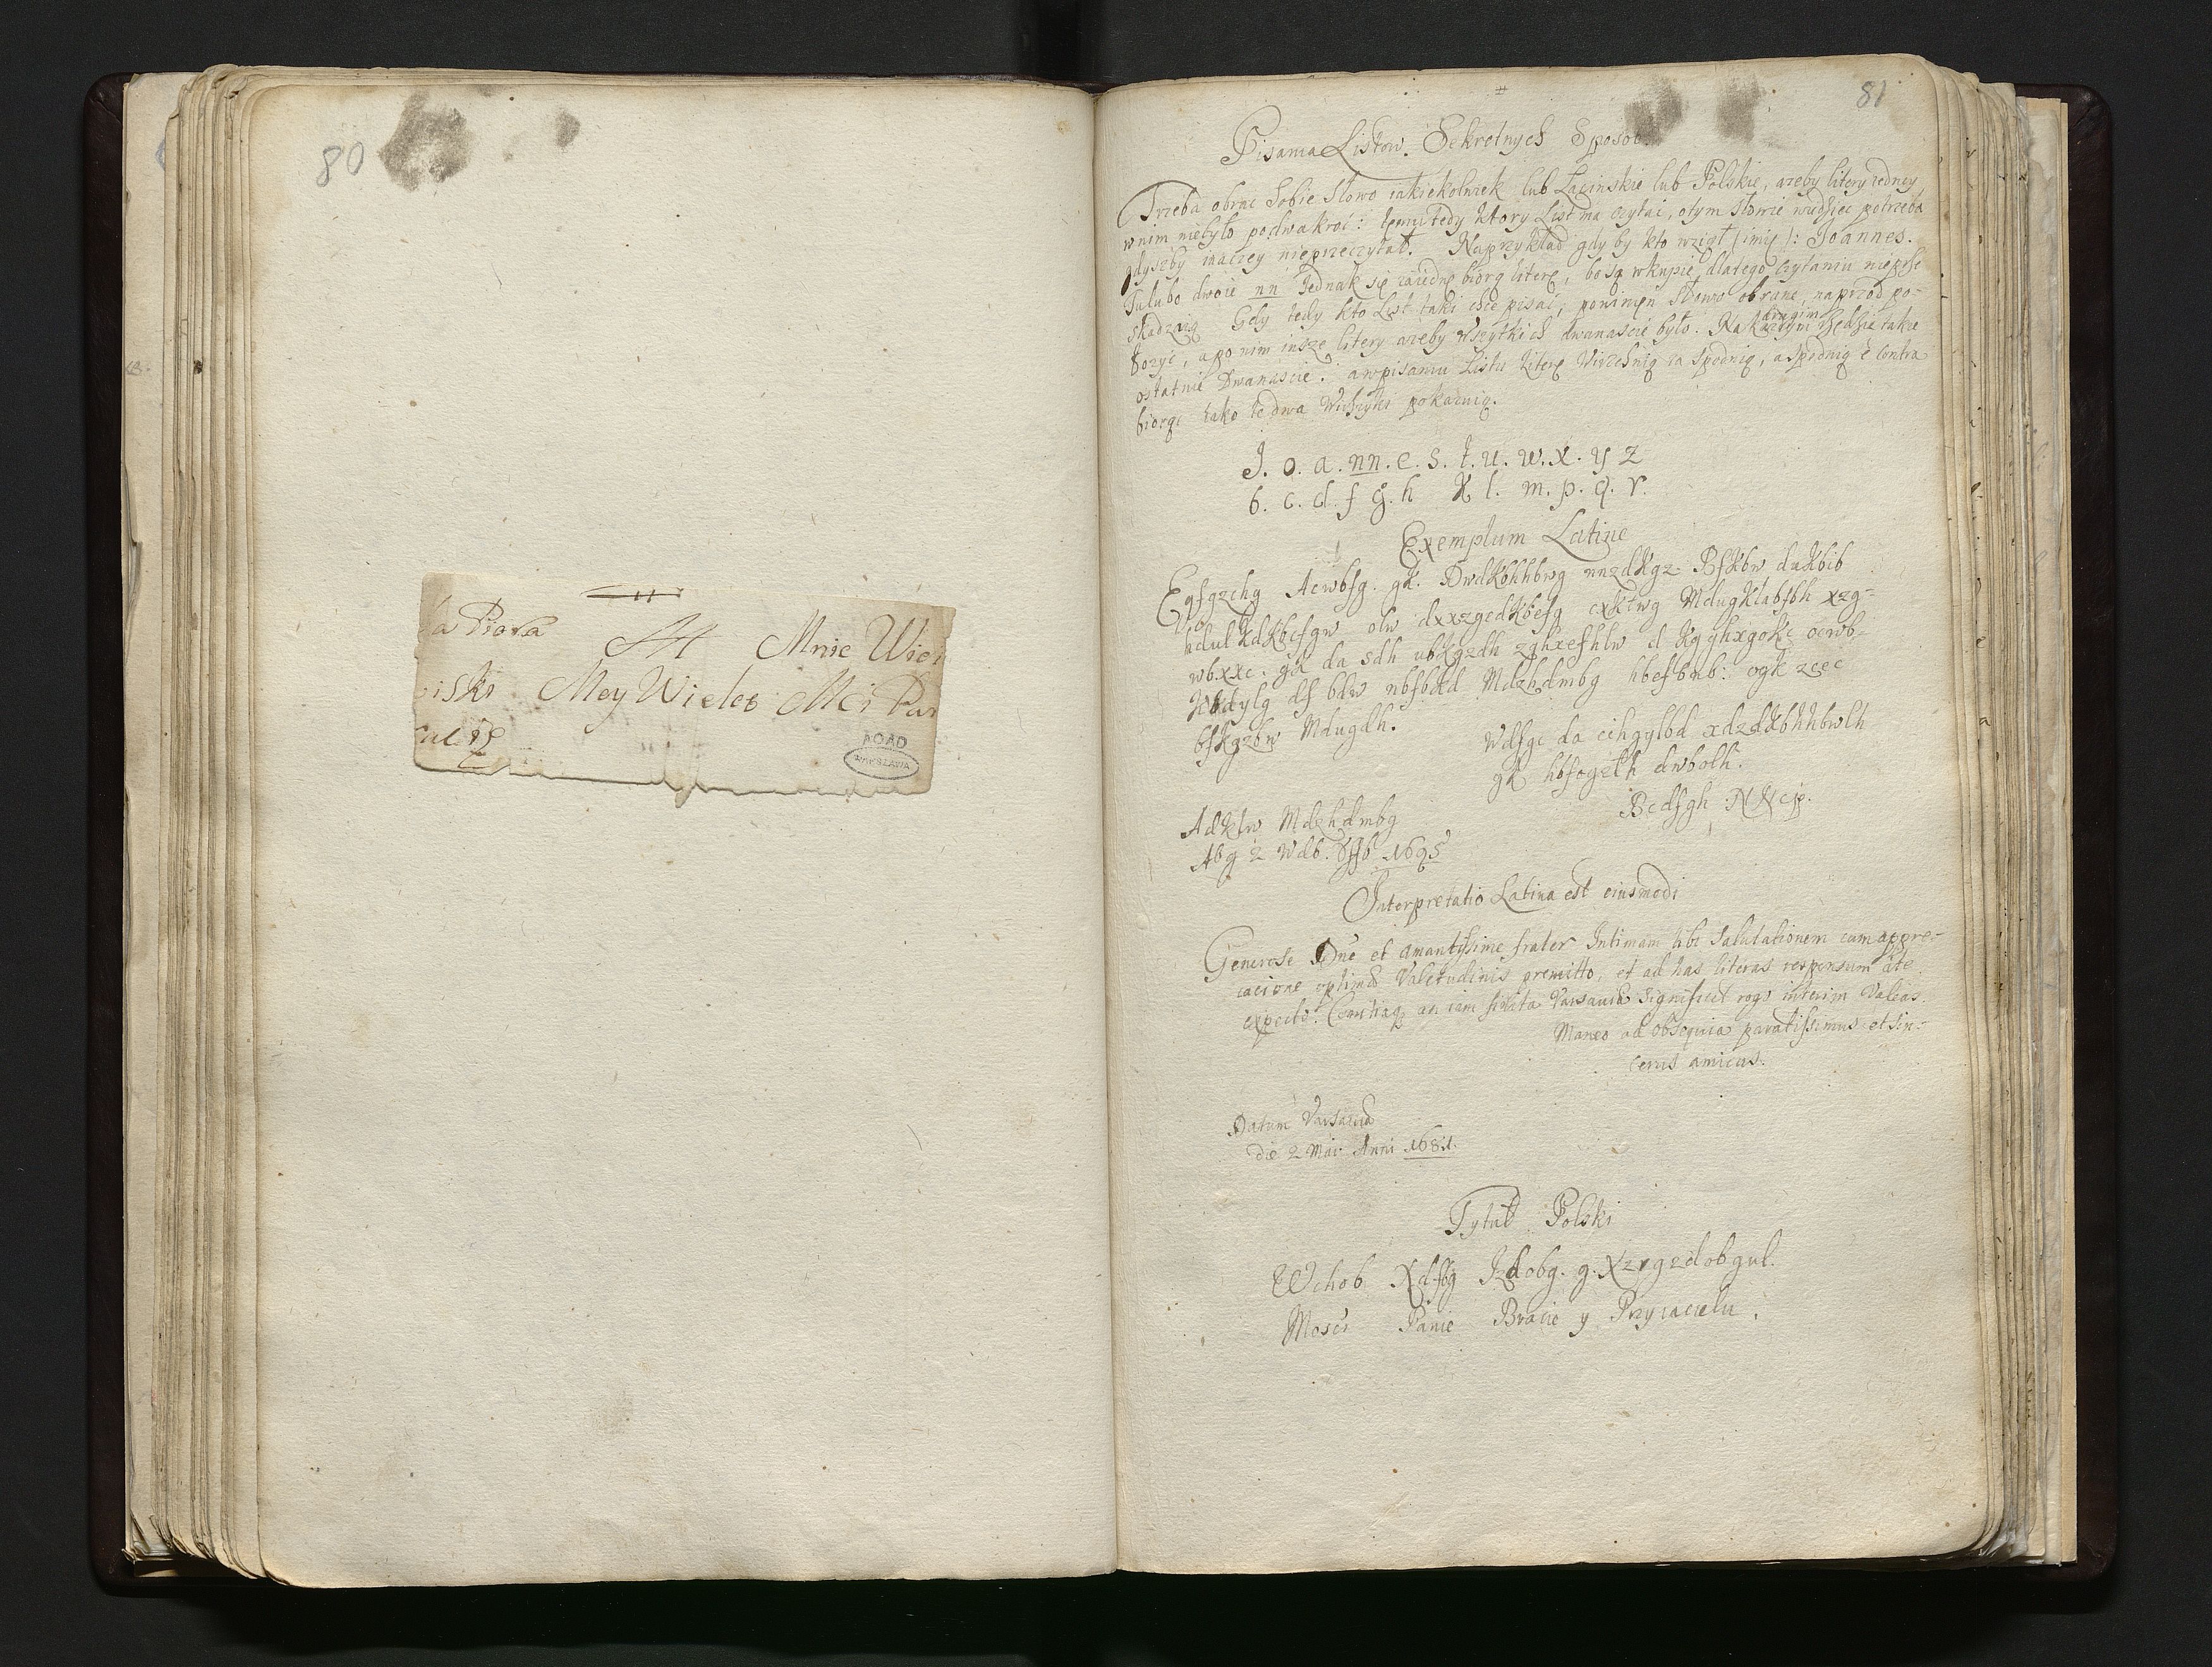 80
la Prosa
A Mnie Wie
iski Mey Wielce Mci Pan
AGAD
WARSZAWA
81
Pisania Listow Sekretnych Sposob
Trzeba obrac sobie Slowo iakiekolwiek lub Łacinskie lub Polskie, azeby litery iedney
w nim niebyło podwakroć: temu tedy ktory List ma czytai, otym słowie wiedziec potrzeba
gdyszby inaczey nieprzeczytał. Naprzykład gdy by kto wziął (imię): Joannes.
Tu lubo dwoie nn Jednak się zaiedne biorą literę, bo są wkupie, dlatego czytaniu nieprze
skadzaią Gdy tedy kto List taki chce pisać, powinien słowo obrane, naprzod po-
łozyć, a po nim insze litery azeby wszytkich dwanascie było. Na drugim Rzędzie takze
ostatnie Dwanascie: a w pisaniu Listu Literę Wirzchnią za spodnią, a spodnią è contra
biorąc iako te dwa Wierszyki pokazuią.
J. o. a. nn. e. s. t. u. w. x. y z
b. c. d. f g. h k l. m. p. q. r.
Exemplum Latine
Eqfgzchg Acwbfg. gk. Dwdkbhhbwg nnzdkgz. Bfkbw dukbib
hdulkdkbcfgw olw dxxzgcdkbefg cxktwg Mdugklabfbh xzg-
wbxxc. gk da sdh ubkgzdh zghxefhlw d kg ghxgokc ocwb-
kbdylg df bdw nbfbkd Mdzhdmbg hbefbnb: ogk zcec
bfkgzbw Mdugdh.
Wdfgc da cihgylbd xdzdkbhhbwlh
gk hbfogzlh dwbolh.
Bcdfgh NNcp.
Adklw Mdzhdmbg
Abg 2 Wdb. dffb 1695
Interpretatio Latina est eiusmodi
Generose Dne et amantissime frater Intimam tibi Salutationem cum appre-
cacione optimæ Valetudinis premitto, et ad has literas responsum à te
expecto. an iam finita Varsaviæ significet rogo interim Valeas.
Maneo ad obsequia paratissimus et sin-
cerus amicus.
Datum Varsaviæ
die 2 Mai Anni 1681.
Tytuł Polski
Wchob Xdfbg Izdobg. g. Xzrgzdobgul.
Mosci Panie Bracie y Przyiacielu.